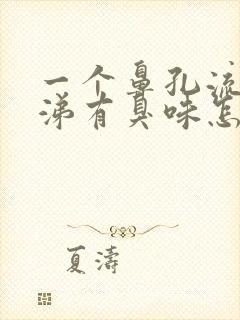 一个鼻孔流
涕有臭味怎
夏涛